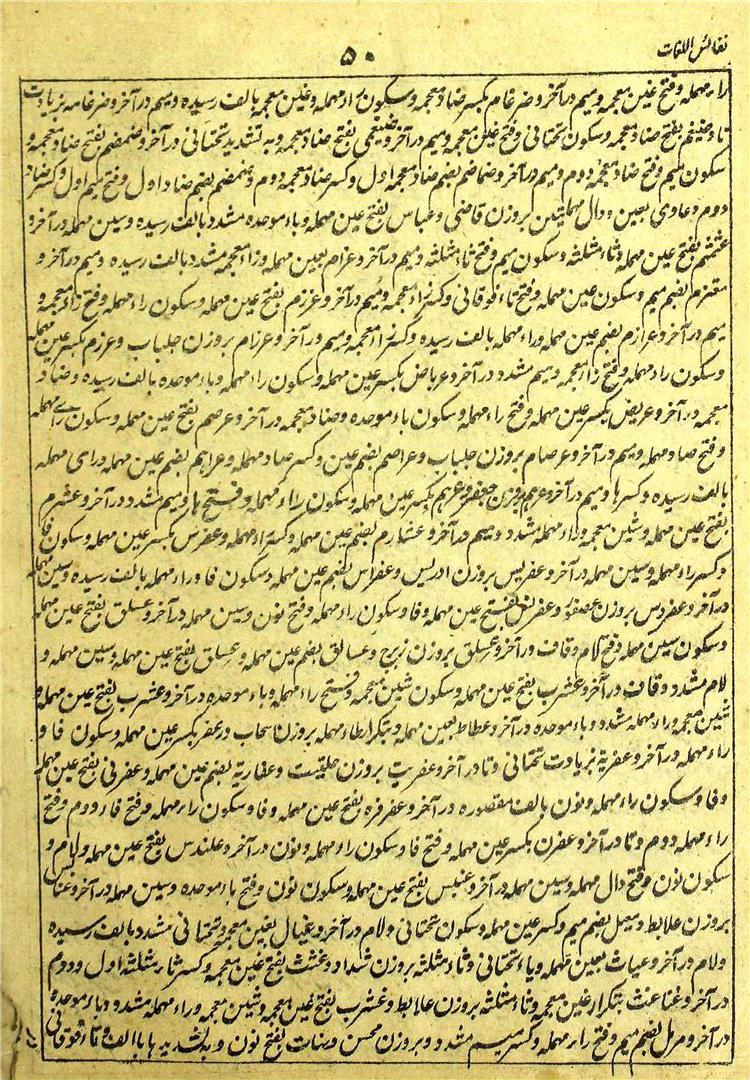 نفائس اللغات
۵۰
راء مهمله و فتح غین معجمه و میم در آخر و ضرغام بکسر ضاد معجمه و سکون راء مهمله و غین معجمه بالف رسیده و میم در آخر و ضرغامه بزیادت
تا و ضیغم بفتح ضاد معجمه و سکون تحتانی و فتح غین معجمه و میم در آخر و ضیغمی بفتح ضاد معجمه و به تشدید تحتانی در آخر و ضمضم بفتح ضاد معجمه و
سکون میم و فتح ضاد معجمه دوم و میم در آخر و ضماضم بضم ضاد معجمه اول و کسر ضاد معجمه دوم و ضمضم بضم ضاد اول و فتح میم اول و کسر ضاد
دوم و عادی بعین و دال مهملتین بروزن قاضی و عباس بفتح عین مهمله و باء موحده مشدد بالف رسیده و سین مهمله در آخر و
عثمثم بفتح عین مهمله و ثاء مثلثه و سکون میم و فتح ثاء مثلثه و میم در آخر و عزام بعین مهمله و زاء معجمه مشدد بالف رسیده و میم در آخر و
معتزم بضم میم و سکون عین مهمله و فتح تاء فوقانی و کسر زاء معجمه و میم در آخر و عرزم بفتح عین مهمله و سکون راء مهمله و فتح زاء معجمه و
میم در آخر و عرازم بضم عین مهمله و راء مهمله بالف رسیده و کسر زاء معجمه و میم در آخر و عرزام بروزن جلباب و عرزم بکسر عین مهمله
و سکون راء مهمله و فتح زاء معجمه و میم مشدد در آخر و عرباض بکسر عین مهمله و سکون راء مهمله و باء موحده بالف رسیده و ضاد
معجمه در آخر و عربض بکسر عین مهمله و فتح راء مهمله و سکون باء موحده و ضاد معجمه در آخر و عرصم بفتح عین مهمله و سکون رای مهمله
و فتح صاد مهمله و میم در آخر و عرصام بروزن جلباب و عراصم بضم عین و کسر صاد مهمله و عراهم بضم عین مهمله و رای مهمله
بالف رسیده و کسر ها و میم در آخر و عرهم بروزن جعفر و عرهم بکسر عین مهمله و سکون راء مهمله و فتح ها و میم مشدد در آخر و عشرم
بفتح عین مهمله و شین معجمه و راء مهمله مشدد و میم در آخر و عشارم بضم عین مهمله و کسر راء مهمله و عفرس بکسر عین مهمله و سکون فا
و کسر راء مهمله و سین مهمله در آخر و عفریس بروزن ادریس و عفراس بضم عین مهمله و سکون فا و راء مهمله بالف رسیده و سین مهمله
در آخر و عفروس بروزن عصفور و عفرنس بفتح عین مهمله و فا و سکون راء مهمله و فتح نون و سین مهمله در آخر و عسلق بفتح عین مهمله
و سکون سین مهمله و فتح لام و قاف در آخر و عسلق بروزن زبرج و عسالق بضم عین مهمله و عسلق بفتح عین مهمله و سین مهمله و
لام مشدد و قاف در آخر و عشرب بفتح عین مهمله و سکون شین معجمه و فتح راء مهمله و باء موحده در آخر و عشرب بفتح عین مهمله و
شین معجمه و راء مهمله مشدد و باء موحده در آخر و عطاط بعین مهمله و بتکرار طاء مهمله بروزن سحاب و عفر بکسر عین مهمله و سکون فا و
راء مهمله در آخر و عفریة بزیادت تحتانی و تا در آخر و عفریت بروزن حلتیت و عفاریة بضم عین مهمله و عفرنی بفتح عین مهمله
و فا و سکون راء مهمله و نون بالف مقصوره در آخر و عفرفره بفتح عین مهمله و فا و سکون راء مهمله و فتح فاء دوم و فتح
راء مهمله دوم و تا در آخر و عفرن بکسر عین مهمله و فتح فا و سکون راء مهمله و نون در آخر و علندس بفتح عین مهمله و لام و
سکون نون و فتح دال مهمله و سین مهمله در آخر و عنبس بفتح عین مهمله و سکون نون و فتح باء موحده و سین مهمله در آخر و عنابس
بروزن علابط و معیل بضم میم و کسر عین مهمله و سکون تحتانی و لام در آخر و غیال بغین معجمه و تحتانی مشدد بالف رسیده
و لام در آخر و عیاث بعین مهمله و یاء تحتانی و ثاء مثلثه بروزن شداد و غثغث بفتح غین معجمه و کسر ثاء مثلثه اول و دوم
در آخر و غثاغث بتکرار غین معجمه و ثاء مثلثه بروزن علابط و غشرب بفتح غین معجمه و شین معجمه و راء مهمله مشدد و باء موحده
در آخر و مرمل بضم میم و فتح راء مهمله و کسر میم مشدد و بروزن محسن و نهات بفتح نون و به تشدید ها با الف و تاء فوقانی